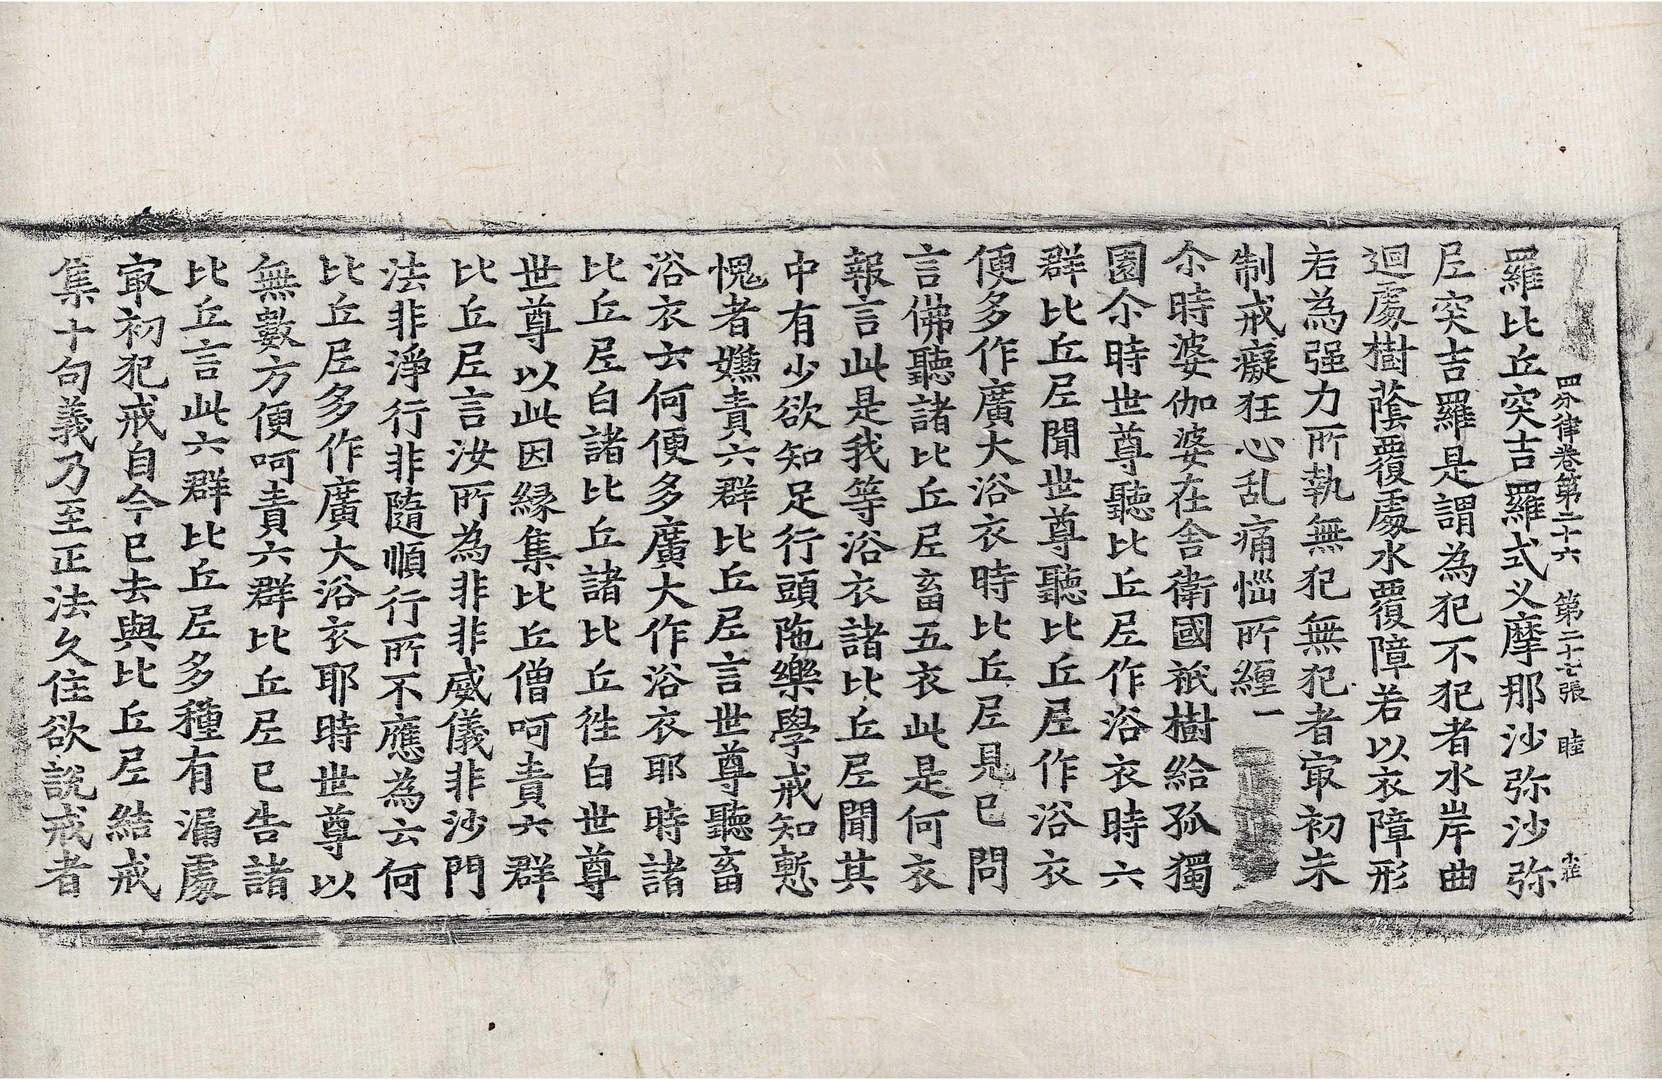 四分律卷第二十六 第二十七張 睦
羅比丘突吉羅式叉摩那沙弥沙弥
尼突吉羅是謂為犯不犯者水岸曲
迴處樹蔭覆處水覆障若以衣障形
若為强力所執無犯無犯者㝡初未
制戒癡狂心乱痛惱所纏一
尒時婆伽婆在舍衛國祇樹給孤獨
園尒時世尊聽比丘尼作浴衣時六
群比丘尼聞世尊聽比丘尼作浴衣
便多作廣大浴衣時比丘尼見已問
言佛聽諸比丘尼畜五衣此是何衣
報言此是我等浴衣諸比丘尼聞其
中有少欲知足行頭陁樂學戒知慙
愧者嫌責六群比丘尼言世尊聽畜
浴衣云何便多廣大作浴衣耶時諸
比丘尼白諸比丘諸比丘徃白世尊
世尊以此因緣集比丘僧呵責六群
比丘尼言汝所為非非威儀非沙門
法非淨行非隨順行所不應為云何
比丘尼多作廣大浴衣耶時世尊以
無數方便呵責六群比丘尼已告諸
比丘言此六群比丘尼多種有漏處
㝡初犯戒自今已去與比丘尼結戒
集十句義乃至正法久住欲說戒者